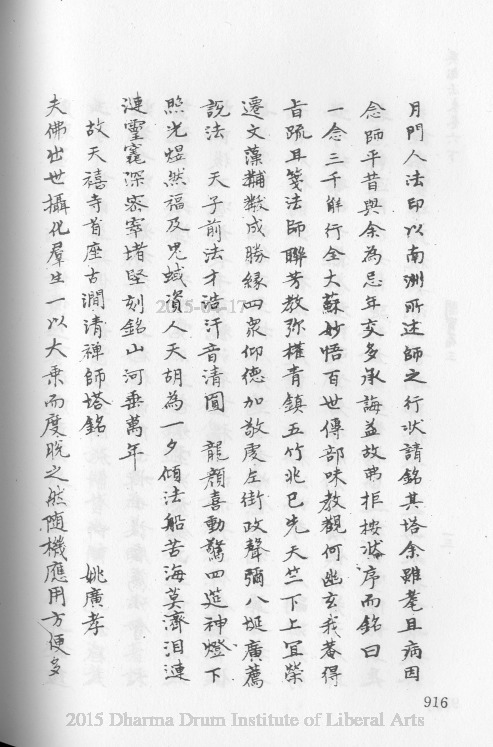 月門人法印以南洲所述師之行狀請銘其塔余雖耄且病因
念師平昔與余為忌年交多承誨益故弗拒按狀序而銘曰
一念三千解行全大蘇妙悟百世傳部味教觀何幽玄我菴得
旨疏且箋法師聯芳教弥権青鎮五竹兆已先天竺下上宜榮
遷文藻黼黻成勝緣四衆仰德加敬虔左街政聲彌八埏廣薦
說法 天子前法才浩汗音清圓 龍顏喜動驚四筵神燈下
照光煜然福及鬼蜮資人天胡為一夕傾法船苦海莫濟泪漣
漣靈窀深窣堵堅刻銘山河垂萬年
故天禧寺首座古澗清禪師塔銘 姚廣孝
夫佛出世攝化羣生一以大乘而度晚之然随機應用方便多
916
2015-04-17
2015 Dharma Drum Institute of Liberal Arts